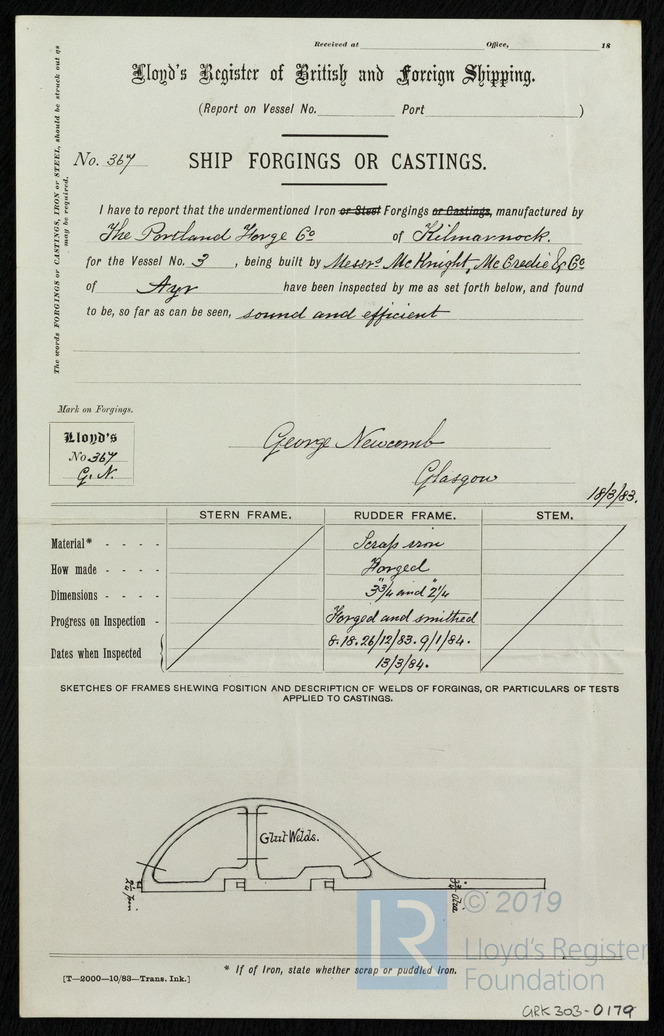 Received at Office, 18
Lloyd's Register of British and Foreign Shipping.
(Report on Vessel No. Port )
The words FORGINGS or CASTINGS, IRON or STEEL, should be struck out as
may be required.
No. 367 SHIP FORGINGS OR CASTINGS.
I have to report that the undermentioned Iron or Steel Forgings or Castings, manufactured by
The Portland Forge Co of Kilmarnock.
for the Vessel No. 3, being built by Messrs McKnight, McCredie & Co
of Ayr have been inspected by me as set forth below, and found
to be, so far as can be seen, sound and efficient
Mark on Forgings.
Lloyd's
No 367
G.N.
George Newcomb
Glasgow
18/3/83.
STERN FRAME. RUDDER FRAME. STEM.
Material* - - - - Scrap iron
How made - - - - Forged
Dimensions - - - - 3¾" and 2¼"
Progress on Inspection - Forged and smithed
Dates when Inspected 8.18.26/12/83. 9/1/84.
13/3/84.
SKETCHES OF FRAMES SHEWING POSITION AND DESCRIPTION OF WELDS OF FORGINGS, OR PARTICULARS OF TESTS
APPLIED TO CASTINGS.
Glut Welds.
2¼
3¾ dia
© 2019
LR
Lloyd's Register
Foundation
* If of Iron, state whether scrap or puddled Iron.
[T—2000—10/83—Trans. Ink.]
GRK303-0179